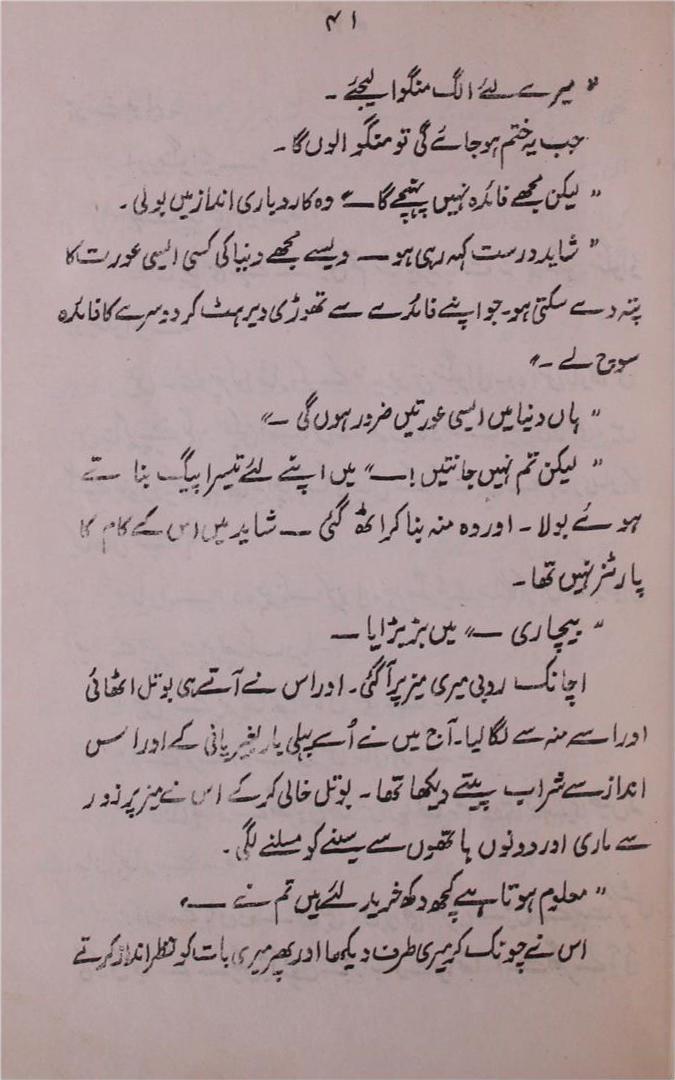 ۴۱
" میرے لئے الگ منگوا لیجئے ۔
جب یہ ختم ہو جائے گی تو منگوا لوں گا ۔
" لیکن مجھے فائدہ نہیں پہنچے گا —" وہ کاروباری انداز میں بولی ۔
" شاید درست کہہ رہی ہو — ویسے مجھے دنیا کی کسی ایسی عورت کا
پتہ دے سکتی ہو ۔ جو اپنے فائدے سے تھوڑی دیر ہٹ کر دوسرے کا فائدہ
سوچ لے ۔"
" ہاں دنیا میں ایسی عورتیں ضرور ہوں گی ۔"
" لیکن تم نہیں جانتیں ! —" میں اپنے لئے تیسرا پیگ بناتے
ہوئے بولا ۔ اور وہ منہ بنا کر اٹھ گئی — شاید میں اس کے کام کا
پارٹنر نہیں تھا ۔
" بیچاری —" میں بڑبڑایا —
اچانک روبی میری میز پر آ گئی ۔ اور اس نے آتے ہی بوتل اٹھائی
اور اسے منہ سے لگا لیا ۔ آج میں نے اُسے پہلی بار بغیر پانی کے اور اس
انداز سے شراب پیتے دیکھا تھا ۔ بوتل خالی کر کے اس نے میز پر زور
سے ماری اور دونوں ہاتھوں سے سینے کو مسلنے لگی ۔
" معلوم ہوتا ہے کچھ دکھ خرید لئے ہیں تم نے —"
اس نے چونک کر میری طرف دیکھا اور پھر میری بات کو نظر انداز کرتے